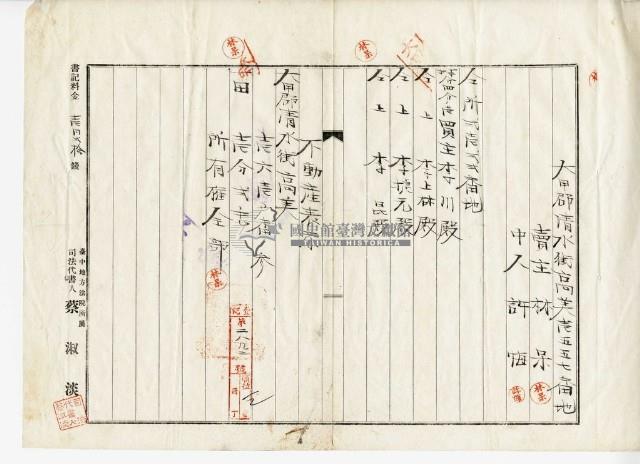 大甲郡清水街高美壱五五七番地
賣主 林呆
中人 許恆
仝所弐壱弐弐番地
買主 李川殿
仝上 李上林殿
仝上 李根元殿
仝上 李昆殿
不動産表示
大甲郡清水街高美
壱六壱六番ノ参
田 壱分弐
所有權全部
林呆
許恆
第二八九二號
書記料金 錢
臺中地方法院所屬
司法代書人 蔡淑淡
國史館臺灣文獻館
TAIWAN HISTORICA